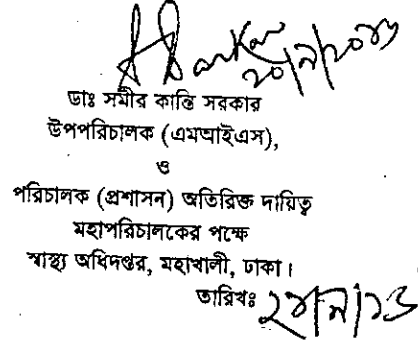 ডাঃ সমীর কান্তি সরকার
উপপরিচালক (এমআইএস),
ও
পরিচালক (প্রশাসন) অতিরিক্ত দায়িত্ব
মহাপরিচালকের পক্ষে
স্বাস্থ্য অধিদপ্তর, মহাখালী, ঢাকা।
তারিখঃ